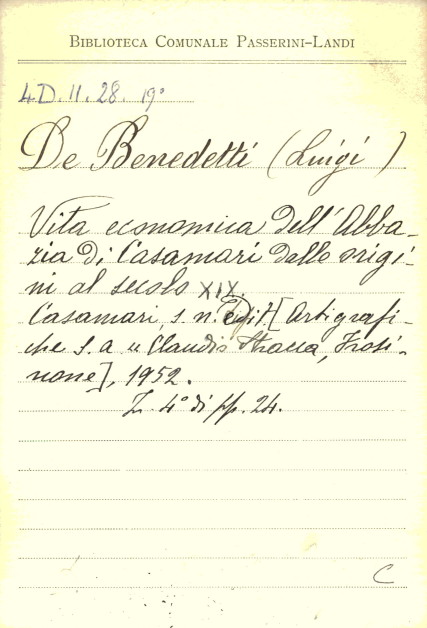 BIBLIOTECA COMUNALE PASSERINI-LANDI
4D. 11. 28. 19°
De Benedetti (Luigi)
Vita economica dell'Abba-
zia di Casamari dalle origi-
ni al secolo XIX.
Casamari, s. n. Edit [Arti grafi-
che s. a "Claudio Stracca, Frosi-
none], 1952.
Z. 4° di pp. 24.
C